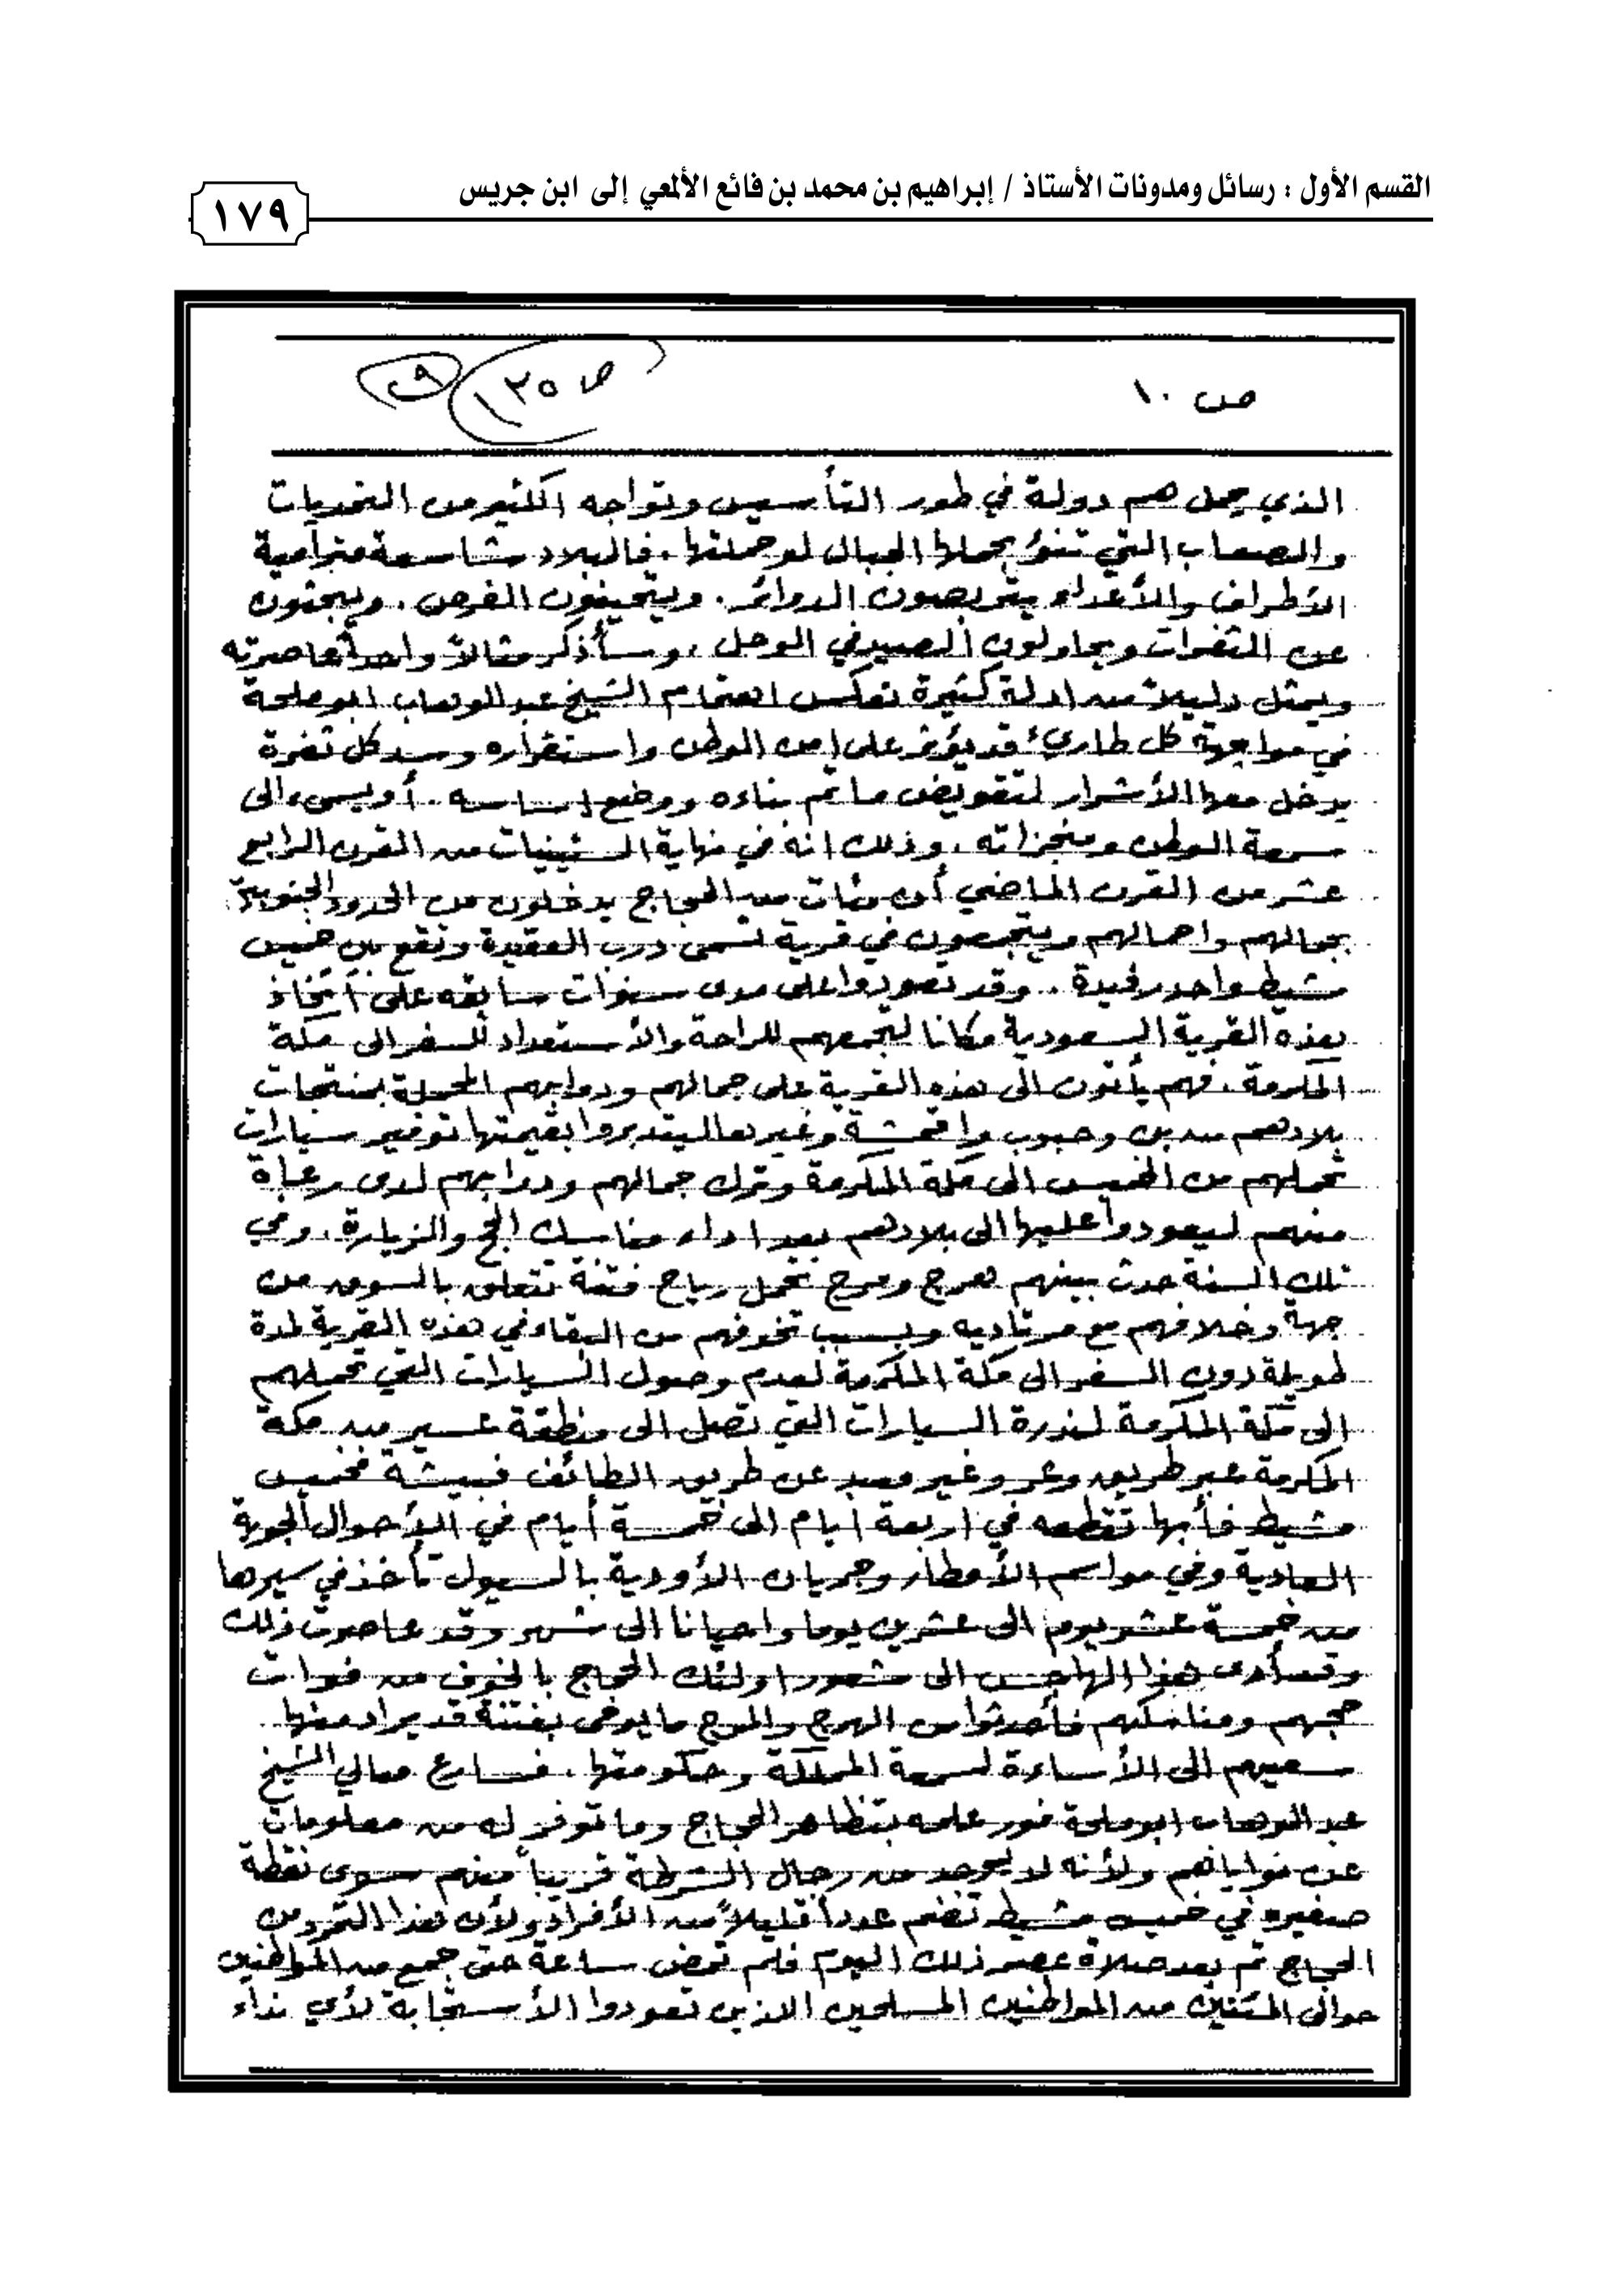 القسم الأول : رسائل ومدونات الأستاذ / إبراهيم بن محمد بن فائع الألمعي إلى ابن جريس
١٧٩
ص ١٠
ص ١٢٥
الذي يحمل هم دولة في طور التأسيس وتواجه الكثير من التحديات
والصعاب التي تنؤ بحملها الجبال لو حملتها . فالبلاد شاسعة مترامية
الأطراف والأعداء يتربصون الدوائر . ويتحينون الفرص . ويبحثون
عن الثغرات ويحاولون الصيد في الوحل . وسأذكر مثالاً واحداً عاصرته
ويمثل دليلاً من ادلة كثيرة تعكس اهتمام الشيخ عبد الوهاب ابو ملحة
في مواجهة كل طارئ قد يؤثر على امن الوطن واستقراره وسد كل ثغرة
يدخل معها الأشرار لتقويض ما تم بناءه ووضع اساسه . أو يسيء الى
سمعة الوطن ومنجزاته . وذلك انه في نهاية الستينيات من القرن الرابع
عشر من القرن الماضي أن مئات من الحجاج يدخلون من الحدود الجنوبية
بجمالهم واحمالهم ويتجمعون في قرية تسمى درب العقيدة وتقع بين خميس
مشيط واحد رفيدة . وقد تعودوا على مدى سنوات سابقه على اتخاذ
هذه القرية السعودية مكانا لتجمعهم للراحة والأستعداد للسفر الى مكة
المكرمة . فهم يأتون الى هذه القرية على جمالهم ودوابهم المحملة بمنتجات
بلادهم من بن وحبوب واقمشة وغيرها ليتدبروا بقيمتها توفير سيارات
تحملهم من الخميس الى مكة المكرمة وترك جمالهم ودوابهم لدى رعاة
منهم ليعودوا عليها الى بلادهم بعد اداء مناسك الحج والزيارة . وفي
تلك السنة حدث بينهم هرج ومرج تحمل رياح فتنة تتعلق بالسوق من
جهة وخلافهم مع مرتاديه وبسبب تخوفهم من البقاء في هذه القرية لمدة
طويلة دون السفر الى مكة المكرمة لعدم وصول السيارات التي تحملهم
الى مكة المكرمة لندرة السيارات التي تصل الى منطقة عسير من مكة
المكرمة عبر طريق وعر وغير معبد عن طريق الطائف فبيشة فخميس
مشيط فأبها تقطعه في اربعة ايام الى خمسة أيام في الأحوال الجوية
العادية وفي مواسم الأمطار وجريان الأودية بالسيول تأخذ في سيرها
من خمسة عشر يوم الى عشرين يوما واحيانا الى شهر وقد عاصرت ذلك
وقد أدى هذا الهاجس الى شعور اولئك الحجاج بالخوف من فوات
حجهم ومناسكهم فأحدثوا من الهرج والمرج ما يوحى بفتنة قد يراد منها
سعيهم الى الأساءة لسمعة المملكة وحكومتها . فسارع معالي الشيخ
عبد الوهاب ابو ملحة فور علمه بتظاهر الحجاج وما توفر له من معلومات
عن نواياهم ولأنه لا يوجد من رجال الشرطة قريباً منهم سوى نقطة
صغيره في خميس مشيط تضم عدداً قليلاً من الأفراد ولأن هذا التمرد من
الحجاج تم بعد صلاة عصر ذلك اليوم فلم تمض ساعة حتى جمع من المواطنين
حوالى المئتين من المواطنين المسلحين الذين تعودوا الأستجابة لأي نداء